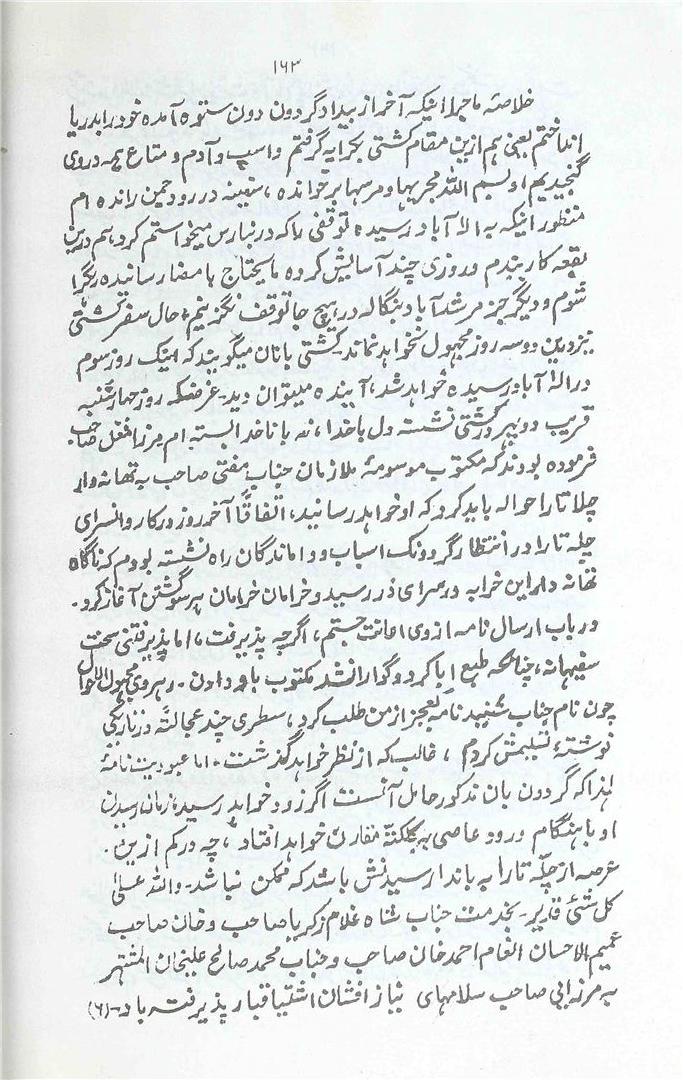 ۱۶۳
خلاصهٔ ماجرا اینکه آخر از بیداد گردون دون ستوه آمده خود را بدریا
انداختم یعنی هم ازین مقام کشتی بکرایه گرفتم و اسپ و آدم و متاع همه در وی
گنجیدیم و بسم الله مجریها و مرسها بر خوانده، سفینه در رود جمن رانده ام
منظور اینکه به الٰه آباد رسیده توقفی را که در بنارس میخواستم کرد، هم درین
بقعه کار بندم و روزی چند آسایش کرده مایحتاج بامضا رسانیده رهگرا
شوم و دیگر جز مرشد آباد بنگاله در هیچ جا توقف نگزینم، حال سفر کشتی
نیز درین دو سه روز مجهول نخواهد ماند۔ کشتی بانان میگویند که اینک روز سوم
در الٰه آباد رسیده خواهد شد، آینده میتوان دید۔ غرضکه روز چهار شنبه
قریب دوپهر در کشتی نشسته دل با خدا، نه با ناخدا بسته ام مرزا مغل صاحب
فرموده بودند که مکتوب موسومهٔ ملازمان جناب مفتی صاحب به تهانه دار
چلا تارا حواله باید کرد که او خواهد رسانید، اتفاقاً آخر روز در کاروانسرای
چله تارا در انتظار گردونک اسباب و واماندگان راه نشسته بودم که ناگاه
تهانه دار این خرابه در سرای در رسید و خرامان خرامان هر سو گشتن آغاز کرد۔
در باب ارسال نامه از وی اعانت جستم، اگرچه پذیرفت، اما پذیرفتنی سخت
سفیهانه، چنانکه طبع ابا کرد و گوارا نشد مکتوب باو دادن۔ رهروی مجهول الاحوال
چون نام جناب شنید نامه بعجز از من طلب کرد، سطری چند عجالتهً در تاریکی
نوشته، تسلیمش کردم، غالب که از نظر خواهد گذشت۔ اما عبودیت نامهٔ
لهذا که گردون بان مذکور حامل آنست اگر زود خواهد رسید، زمان رسیدن
او با هنگام ورود عاصی به کلکته مقارن خواهد افتاد، چه در کم ازین
عرصه از چله تارا به باندا رسیدنش باشد که ممکن نباشد۔ والله علیٰ
کل شئ قدیر۔ بخدمت جناب شاه غلام زکریا صاحب و خان صاحب
عمیم الاحسان انعام احمد خان صاحب و جناب محمد صالح علیخان المشتهر
به مرزایی صاحب سلامهای نیاز افشان اشتیاق بار پذیرفته باد۔ (۶)